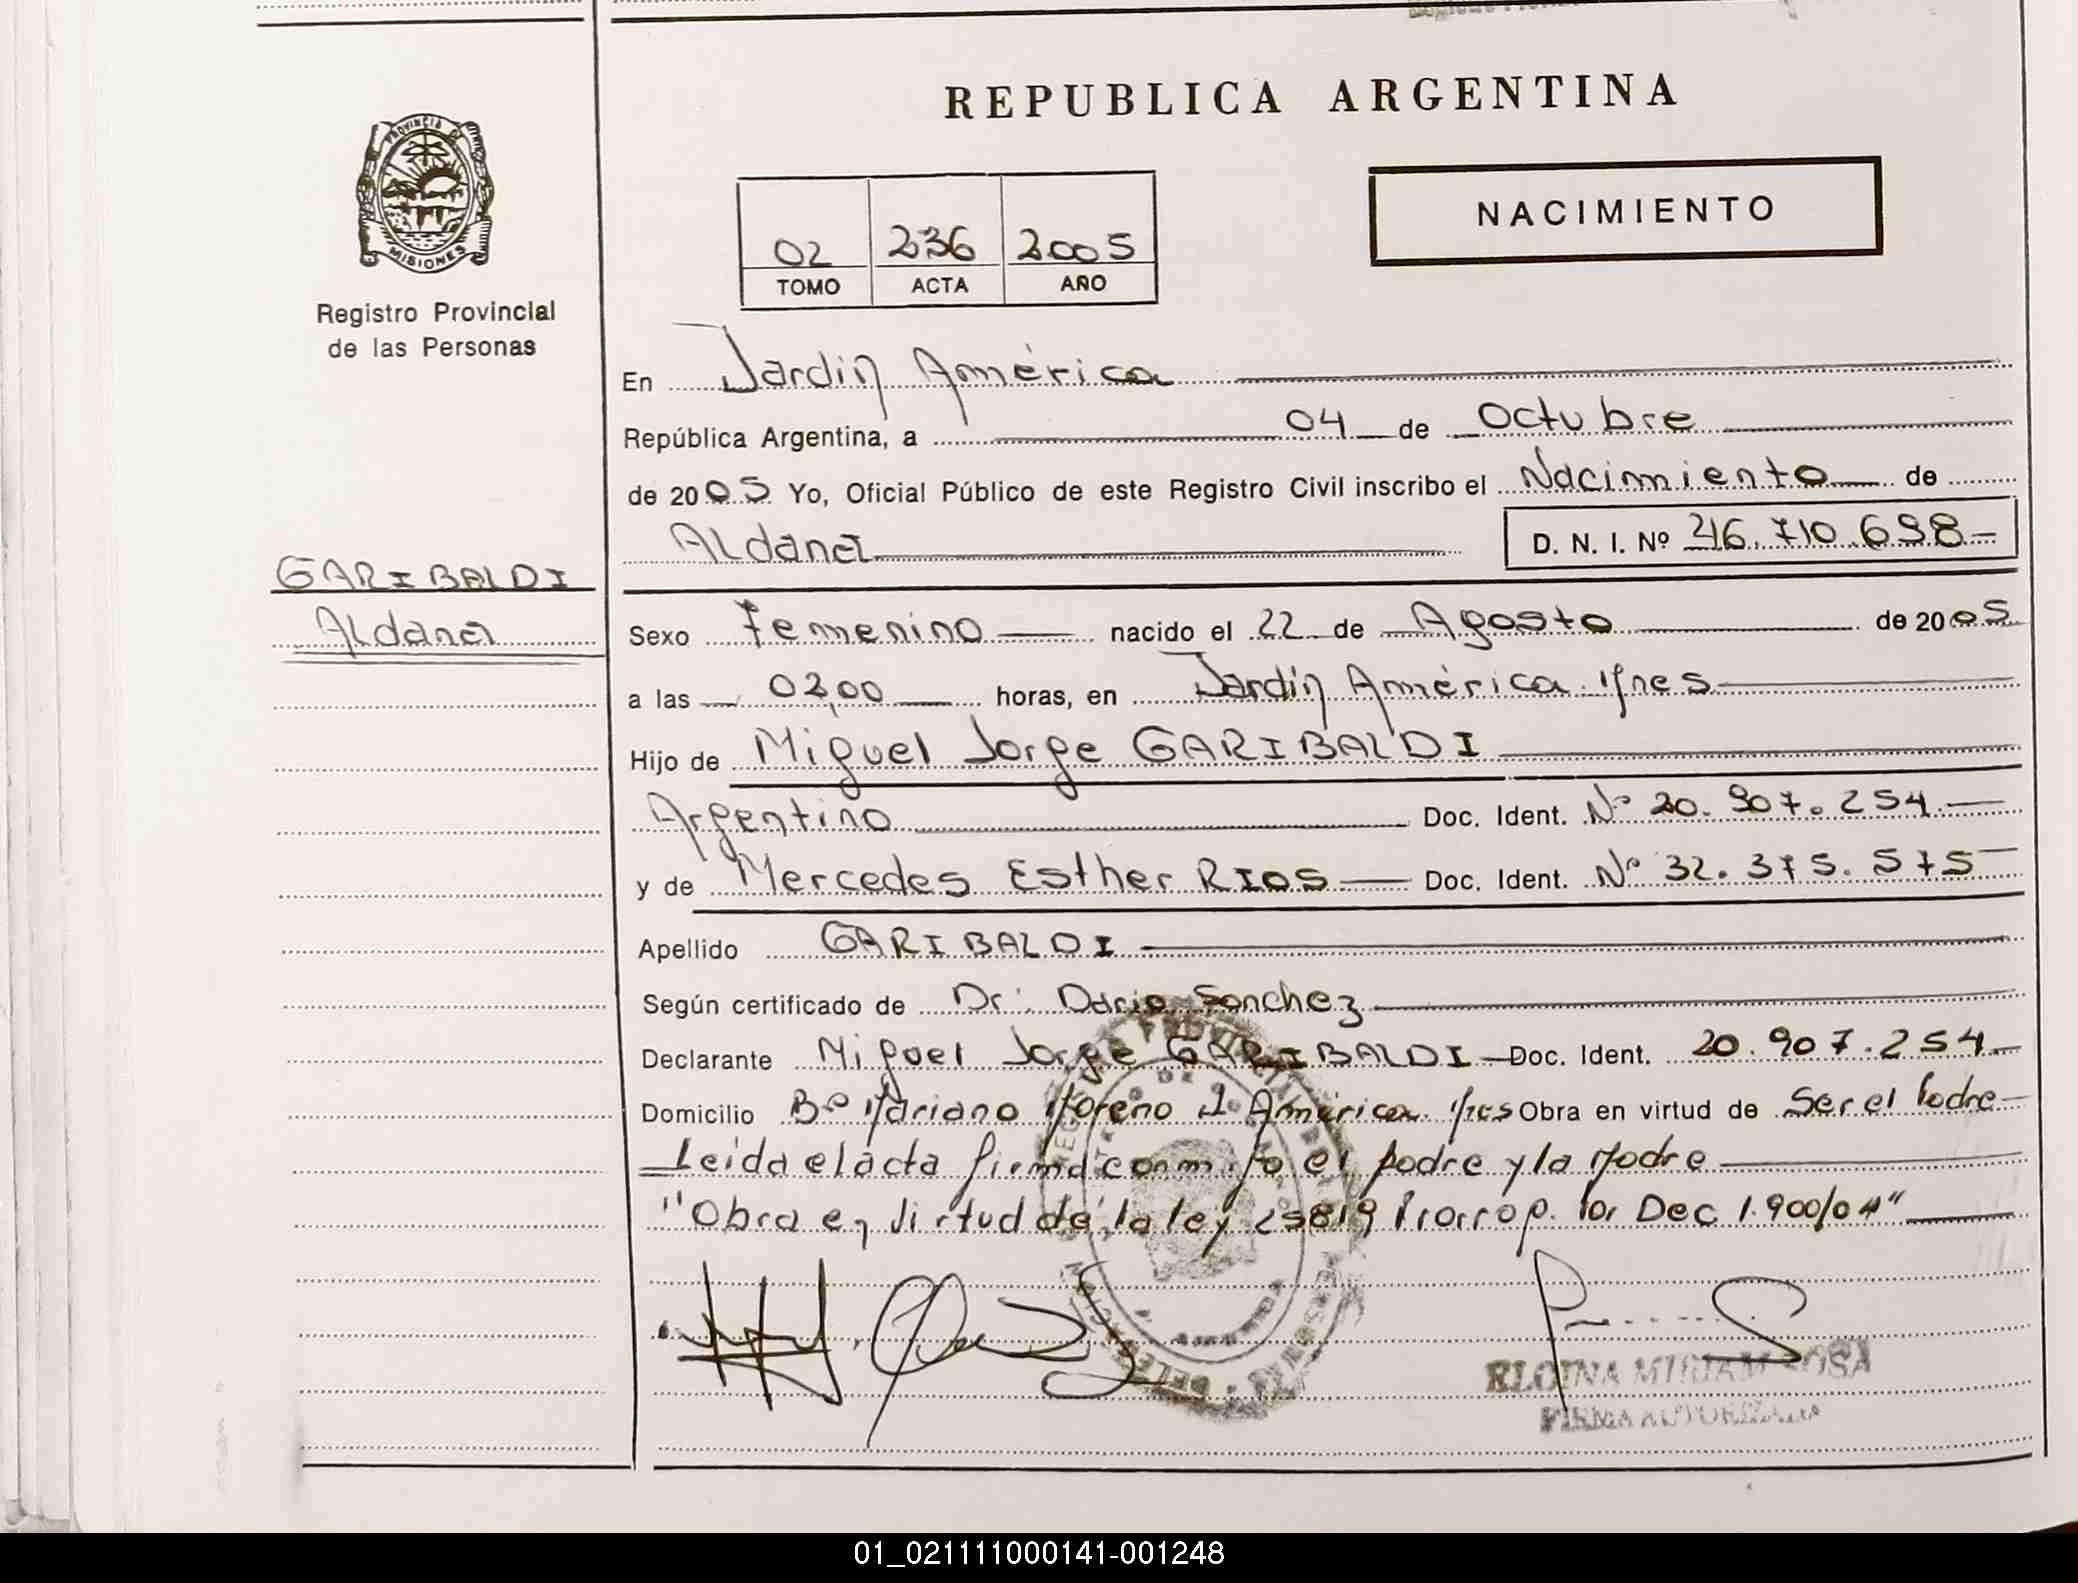 REPUBLICA ARGENTINA
PROVINCIA DE
MISIONES
Registro Provincial
de las Personas
NACIMIENTO
02 236 2005
TOMO ACTA AÑO
En Jardin América
República Argentina, a 04 de Octubre
de 2005 Yo, Oficial Público de este Registro Civil inscribo el Nacimiento de
Aldana D. N. I. Nº 46.710.698-
GARIBALDI
Aldana
Sexo Femenino nacido el 22 de Agosto de 2005
a las 02,00 horas, en Jardin América. Mnes
Hijo de Miguel Jorge GARIBALDI
Argentino Doc. Ident. Nº 20.907.254
y de Mercedes Esther RIOS Doc. Ident. Nº 32.375.575
Apellido GARIBALDI
Según certificado de Dr: Dario Sanchez
Declarante Miguel Jorge GARIBALDI Doc. Ident. 20.907.254
Domicilio Bº Mariano Moreno J. América Mnes Obra en virtud de Ser el Padre
Leida el acta firma conmigo el padre y la Madre
"Obra en virtud de la ley 25819 Prorrop. Por Dec 1.900/04"
MIRIAM ROSA
FIRMA AUTORIZADA
01_021111000141-001248